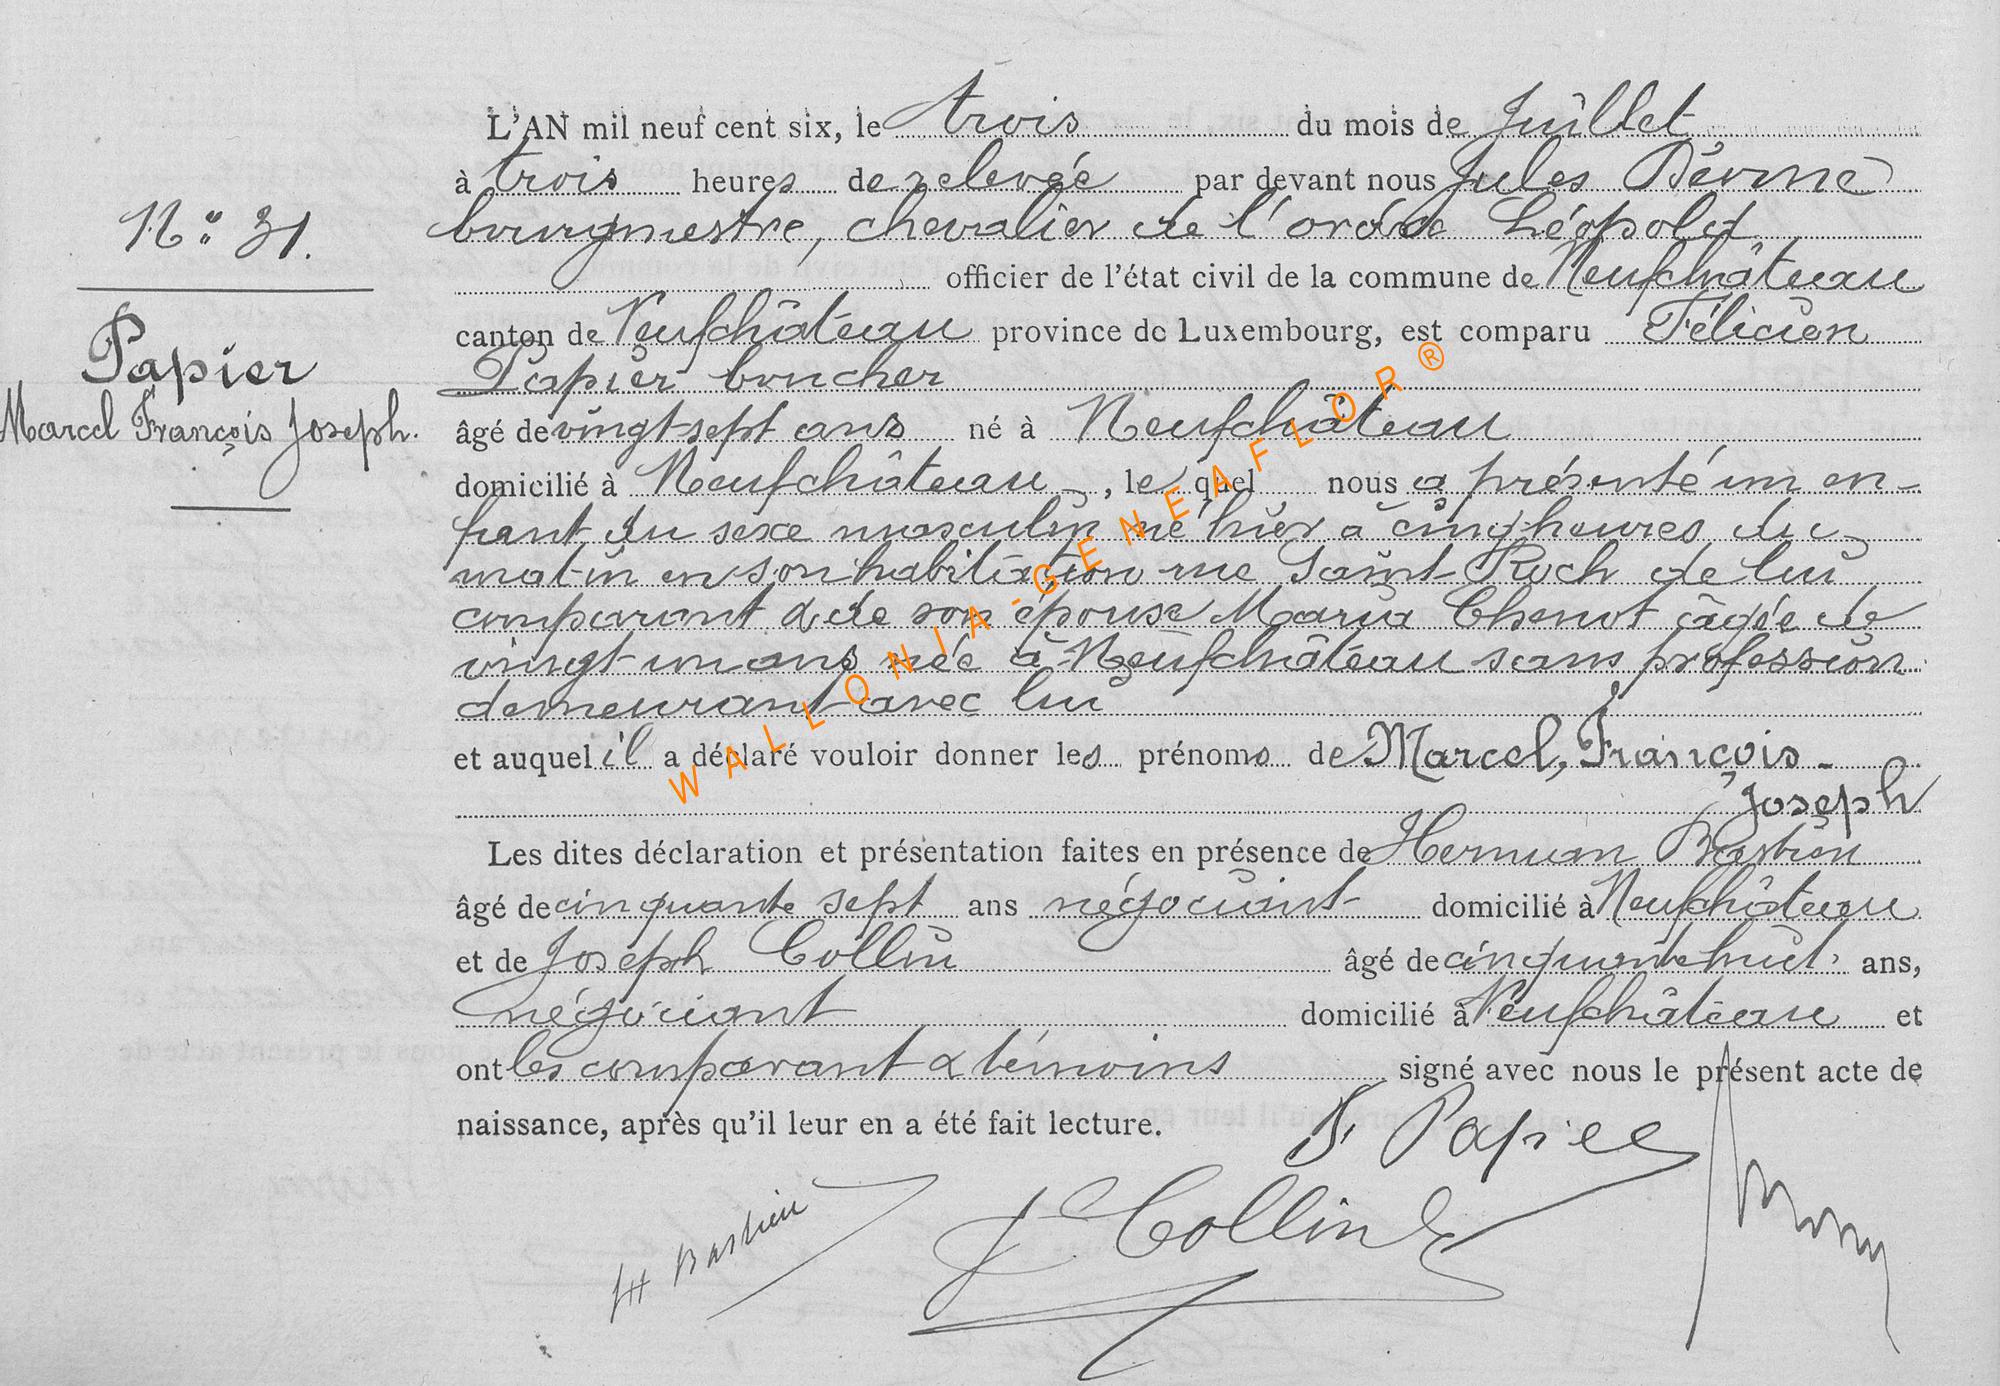 N° 31.
Papier
Marcel François Joseph.
L'AN mil neuf cent six, le trois du mois de Juillet
à trois heures de relevée par devant nous Jules
bourgmestre, chevalier de l'ordre Léopold
officier de l'état civil de la commune de Neufchâteau
canton de Neufchâteau province de Luxembourg, est comparu Félicien
Papier boucher
âgé de vingt-sept ans né à Neufchâteau
domicilié à Neufchâteau, le quel nous a présenté un en-
fant du sexe masculin né hier à cinq heures du
matin en son habitation rue Saint-Roch de lui
comparant & de son épouse Maria Chenot âgée de
vingt-un ans née à Neufchâteau sans profession
demeurant avec lui
et auquel il a déclaré vouloir donner les prénoms de Marcel, François-
Joseph
Les dites déclaration et présentation faites en présence de Herman Bastien
âgé de cinquante sept ans négociant domicilié à Neufchâteau
et de Joseph Collin âgé de cinquante huit ans,
négociant domicilié à Neufchâteau et
ont les comparant & témoins signé avec nous le présent acte de
naissance, après qu'il leur en a été fait lecture.
Papier
H Bastien
J Collin
WALLONIA-GENEAFLOR®